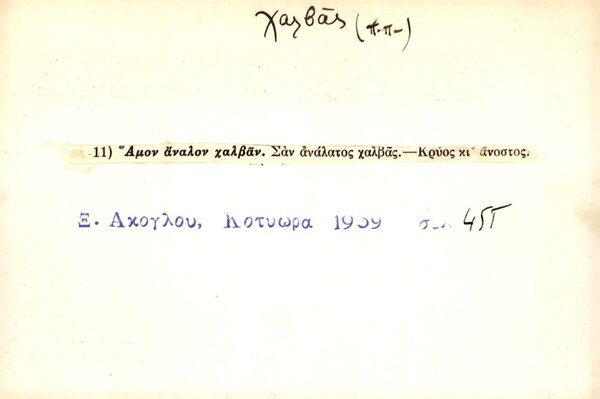 χαλβᾶς (π.π.)
11) Ἄμον ἄναλον χαλβᾶν. Σὰν ἀνάλατος χαλβᾶς.—Κρύος κι' ἄνοστος.
Ξ. Ακογλου, Κοτυωρα 1939 σελ 455